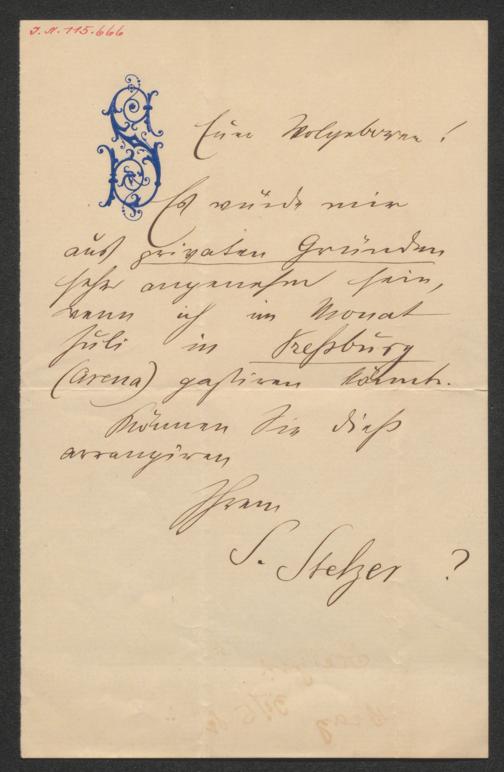 I.N. 115.666
S
Euer Wolgeboren!
Es würde mir
aus privaten Gründen
sehr angenehm sein,
wenn ich im Monat
Juli in Preßburg
(Arena) gastiren könnte.
Können Sie dieß
arrangiren
Ihrem
S. Stelzer ?